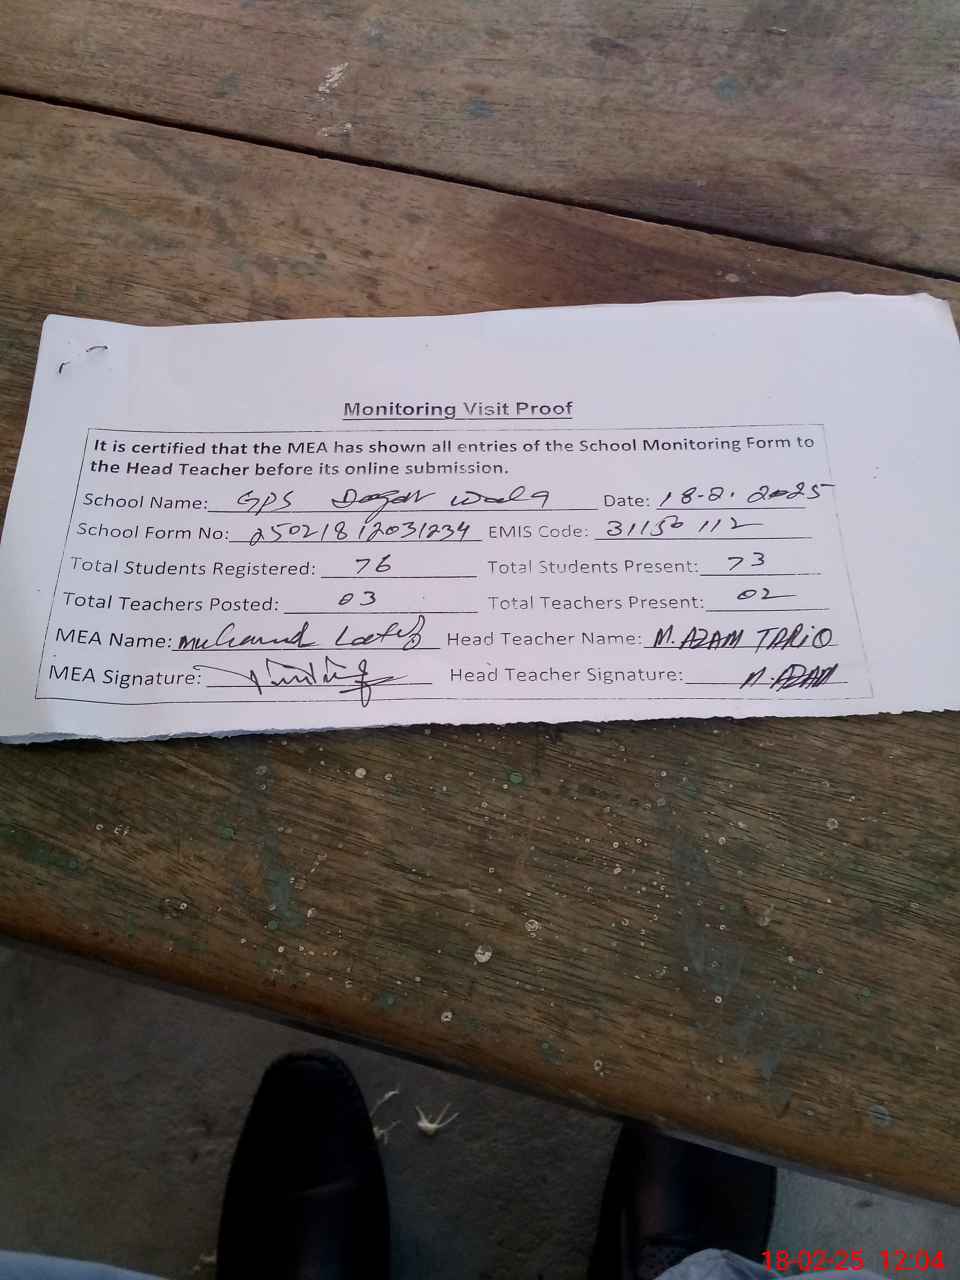 Monitoring Visit Proof
It is certified that the MEA has shown all entries of the School Monitoring Form to
the Head Teacher before its online submission.
School Name: GPS Wala Date: 18-2-2025
School Form No: 25021812031234 EMIS Code: 31150112
Total Students Registered: 76 Total Students Present: 73
Total Teachers Posted: 03 Total Teachers Present: 02
MEA Name: Muhammad Lateef Head Teacher Name: M. AZAM TARIQ
MEA Signature: Head Teacher Signature: M. AZAM
18-02-25 12:04